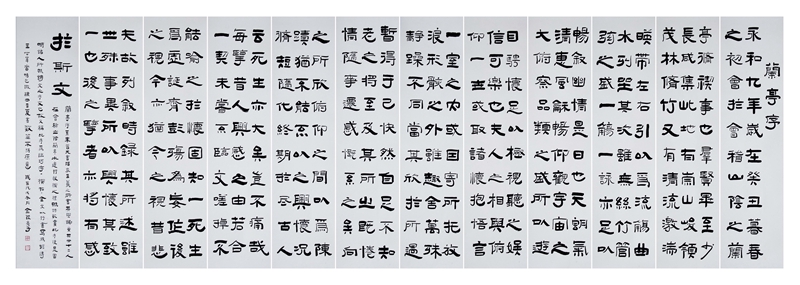 蘭亭序
永和九年歲在癸丑暮春
之初會于會稽山陰之蘭
亭脩禊事也群賢畢至少
長咸集此地有崇山峻領
茂林脩竹又有清流激湍
暎帶左右引以為流觴曲
水列坐其次雖無絲竹管
弦之盛一觴一詠亦足以
暢敘幽情是日也天朗氣
清惠風和暢仰觀宇宙之
大俯察品類之盛所以遊
目騁懷足以極視聽之娛
信可樂也夫人之相與俯
仰一世或取諸懷抱悟言
一室之內或因寄所託放
浪形骸之外雖趣舍萬殊
靜躁不同當其欣於所遇
暫得於己快然自足不知
老之將至及其所之既惓
情隨事遷感慨係之矣向
之所欣俯仰之間以為陳
跡猶不能不以之興懷況
脩短隨化終期於盡古人
云死生亦大矣豈不痛哉
每攬昔人興感之由若合
一契未嘗不臨文嗟悼不
能喻之於懷固知一死生
為虛誕齊彭殤為妄作後
之視今亦猶今之視昔悲
夫故列敘時錄其所述雖
世殊事異所以興懷其致
一也後之攬者亦將有感
於斯文